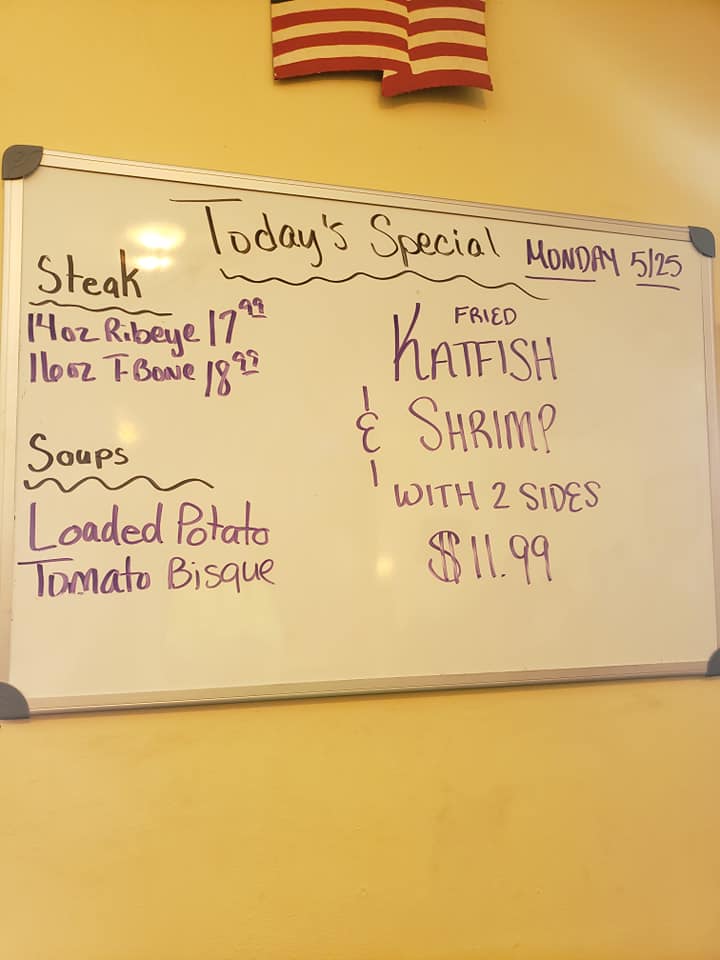 Today's Special
MONDAY 5/25
Steak
14oz Ribeye 17.99
16oz T-Bone 18.99
Soups
Loaded Potato
Tomato Bisque
FRIED
KATFISH
& SHRIMP
WITH 2 SIDES
$11.99